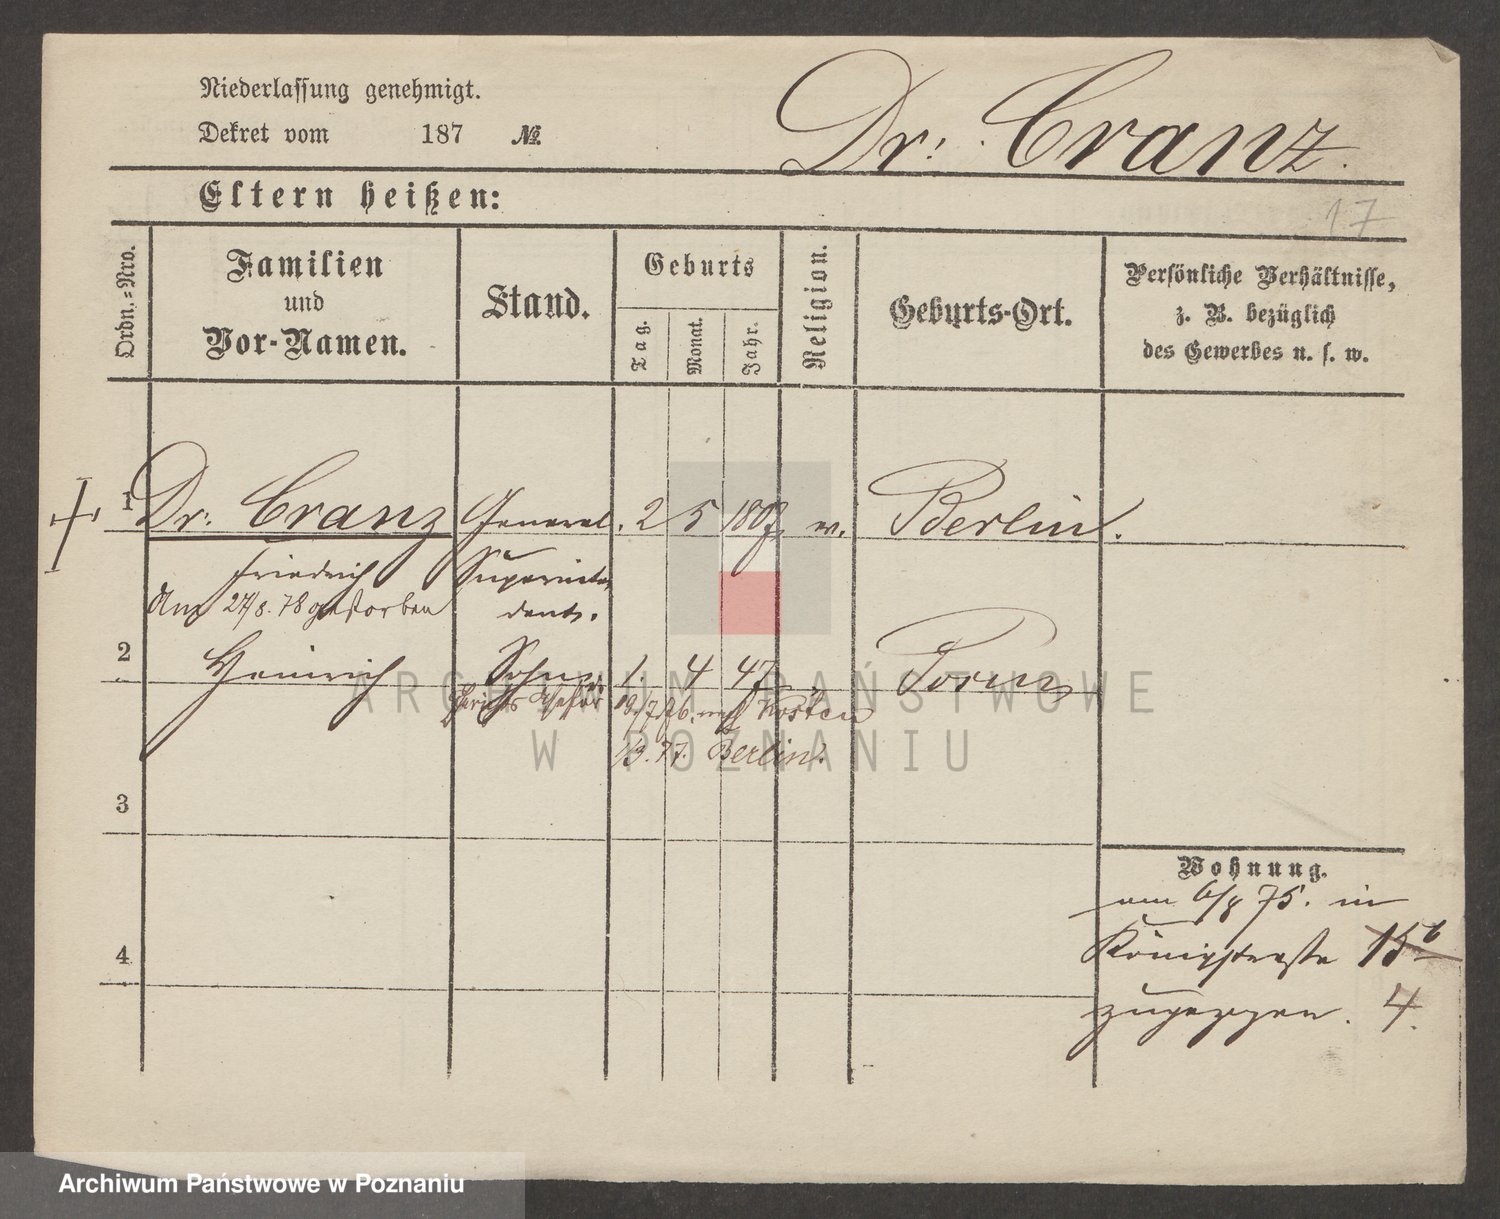 Niederlassung genehmigt.
Dekret vom 187 №
Dr. Cranz.
Eltern heißen:
17
Ordn.=Nro.
Familien
und
Vor-Namen.
Stand.
Geburts
Tag.
Monat.
Jahr.
Religion.
Geburts-Ort.
Persönliche Verhältnisse,
z. B. bezüglich
des Gewerbes u. s. w.
1 Dr. Cranz General. 2 5 1807 ev. Berlin.
Friedrich Superinten
Am 27/8. 78 gestorben dent.
2 Heinrich Sohn 1. 4 47
nach Kosten
Berlin.
3
Wohnung.
am 6/8 75. in
Königstraße 15b
4
zugezogen. 4.
ARCHIWUM PAŃSTWOWE
W POZNANIU
Archiwum Państwowe w Poznaniu